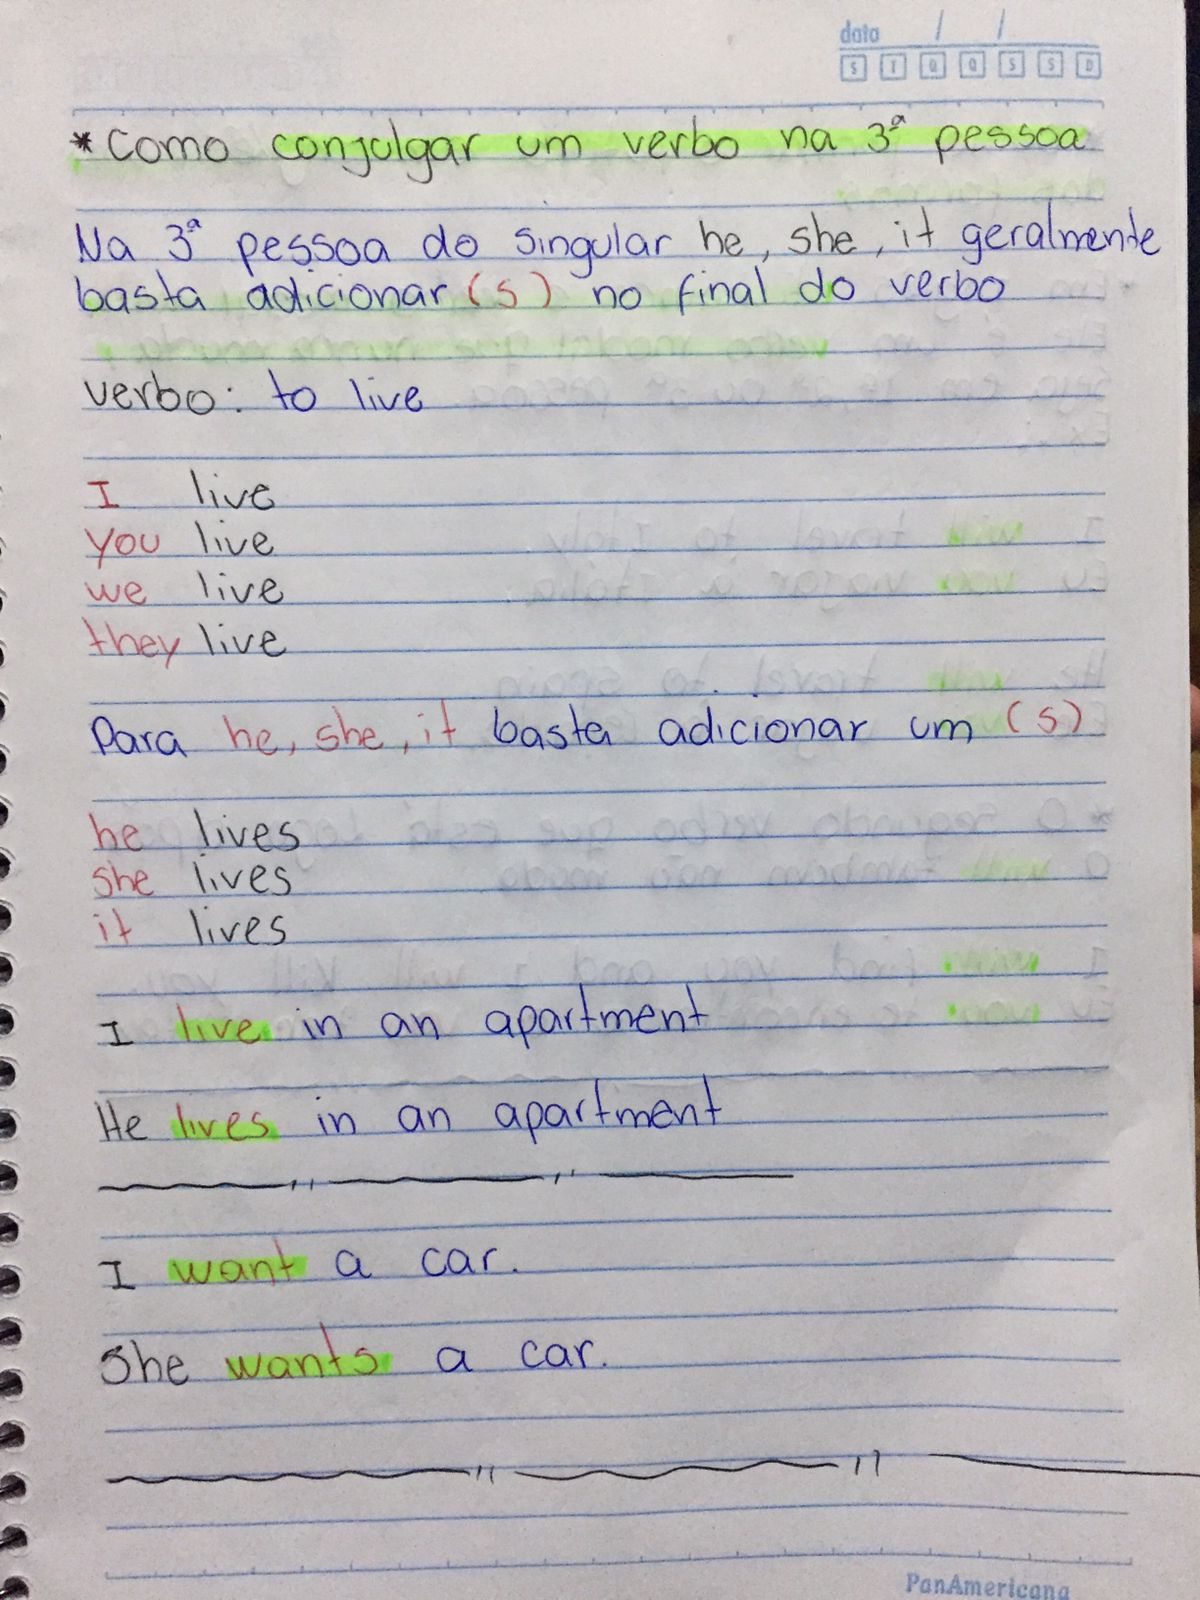 data / /
S T Q Q S S D
* Como conjulgar um verbo na 3ª pessoa
Na 3ª pessoa do singular he, she, it geralmente
basta adicionar (s) no final do verbo
verbo: to live
I live
you live
we live
they live
Para he, she, it basta adicionar um (s)
he lives
she lives
it lives
I live in an apartment
He lives in an apartment
I want a car.
She wants a car.
PanAmericana